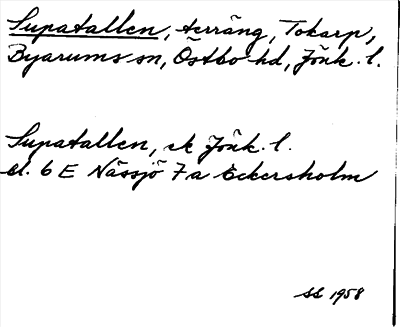 Supatallen, terräng, Tokarp,
Byarums sn, Östbo hd, Jönk. l.
Supatallen, ek Jönk. l.
el. 6 E Nässjö 7a Eckersholm
SS 1958